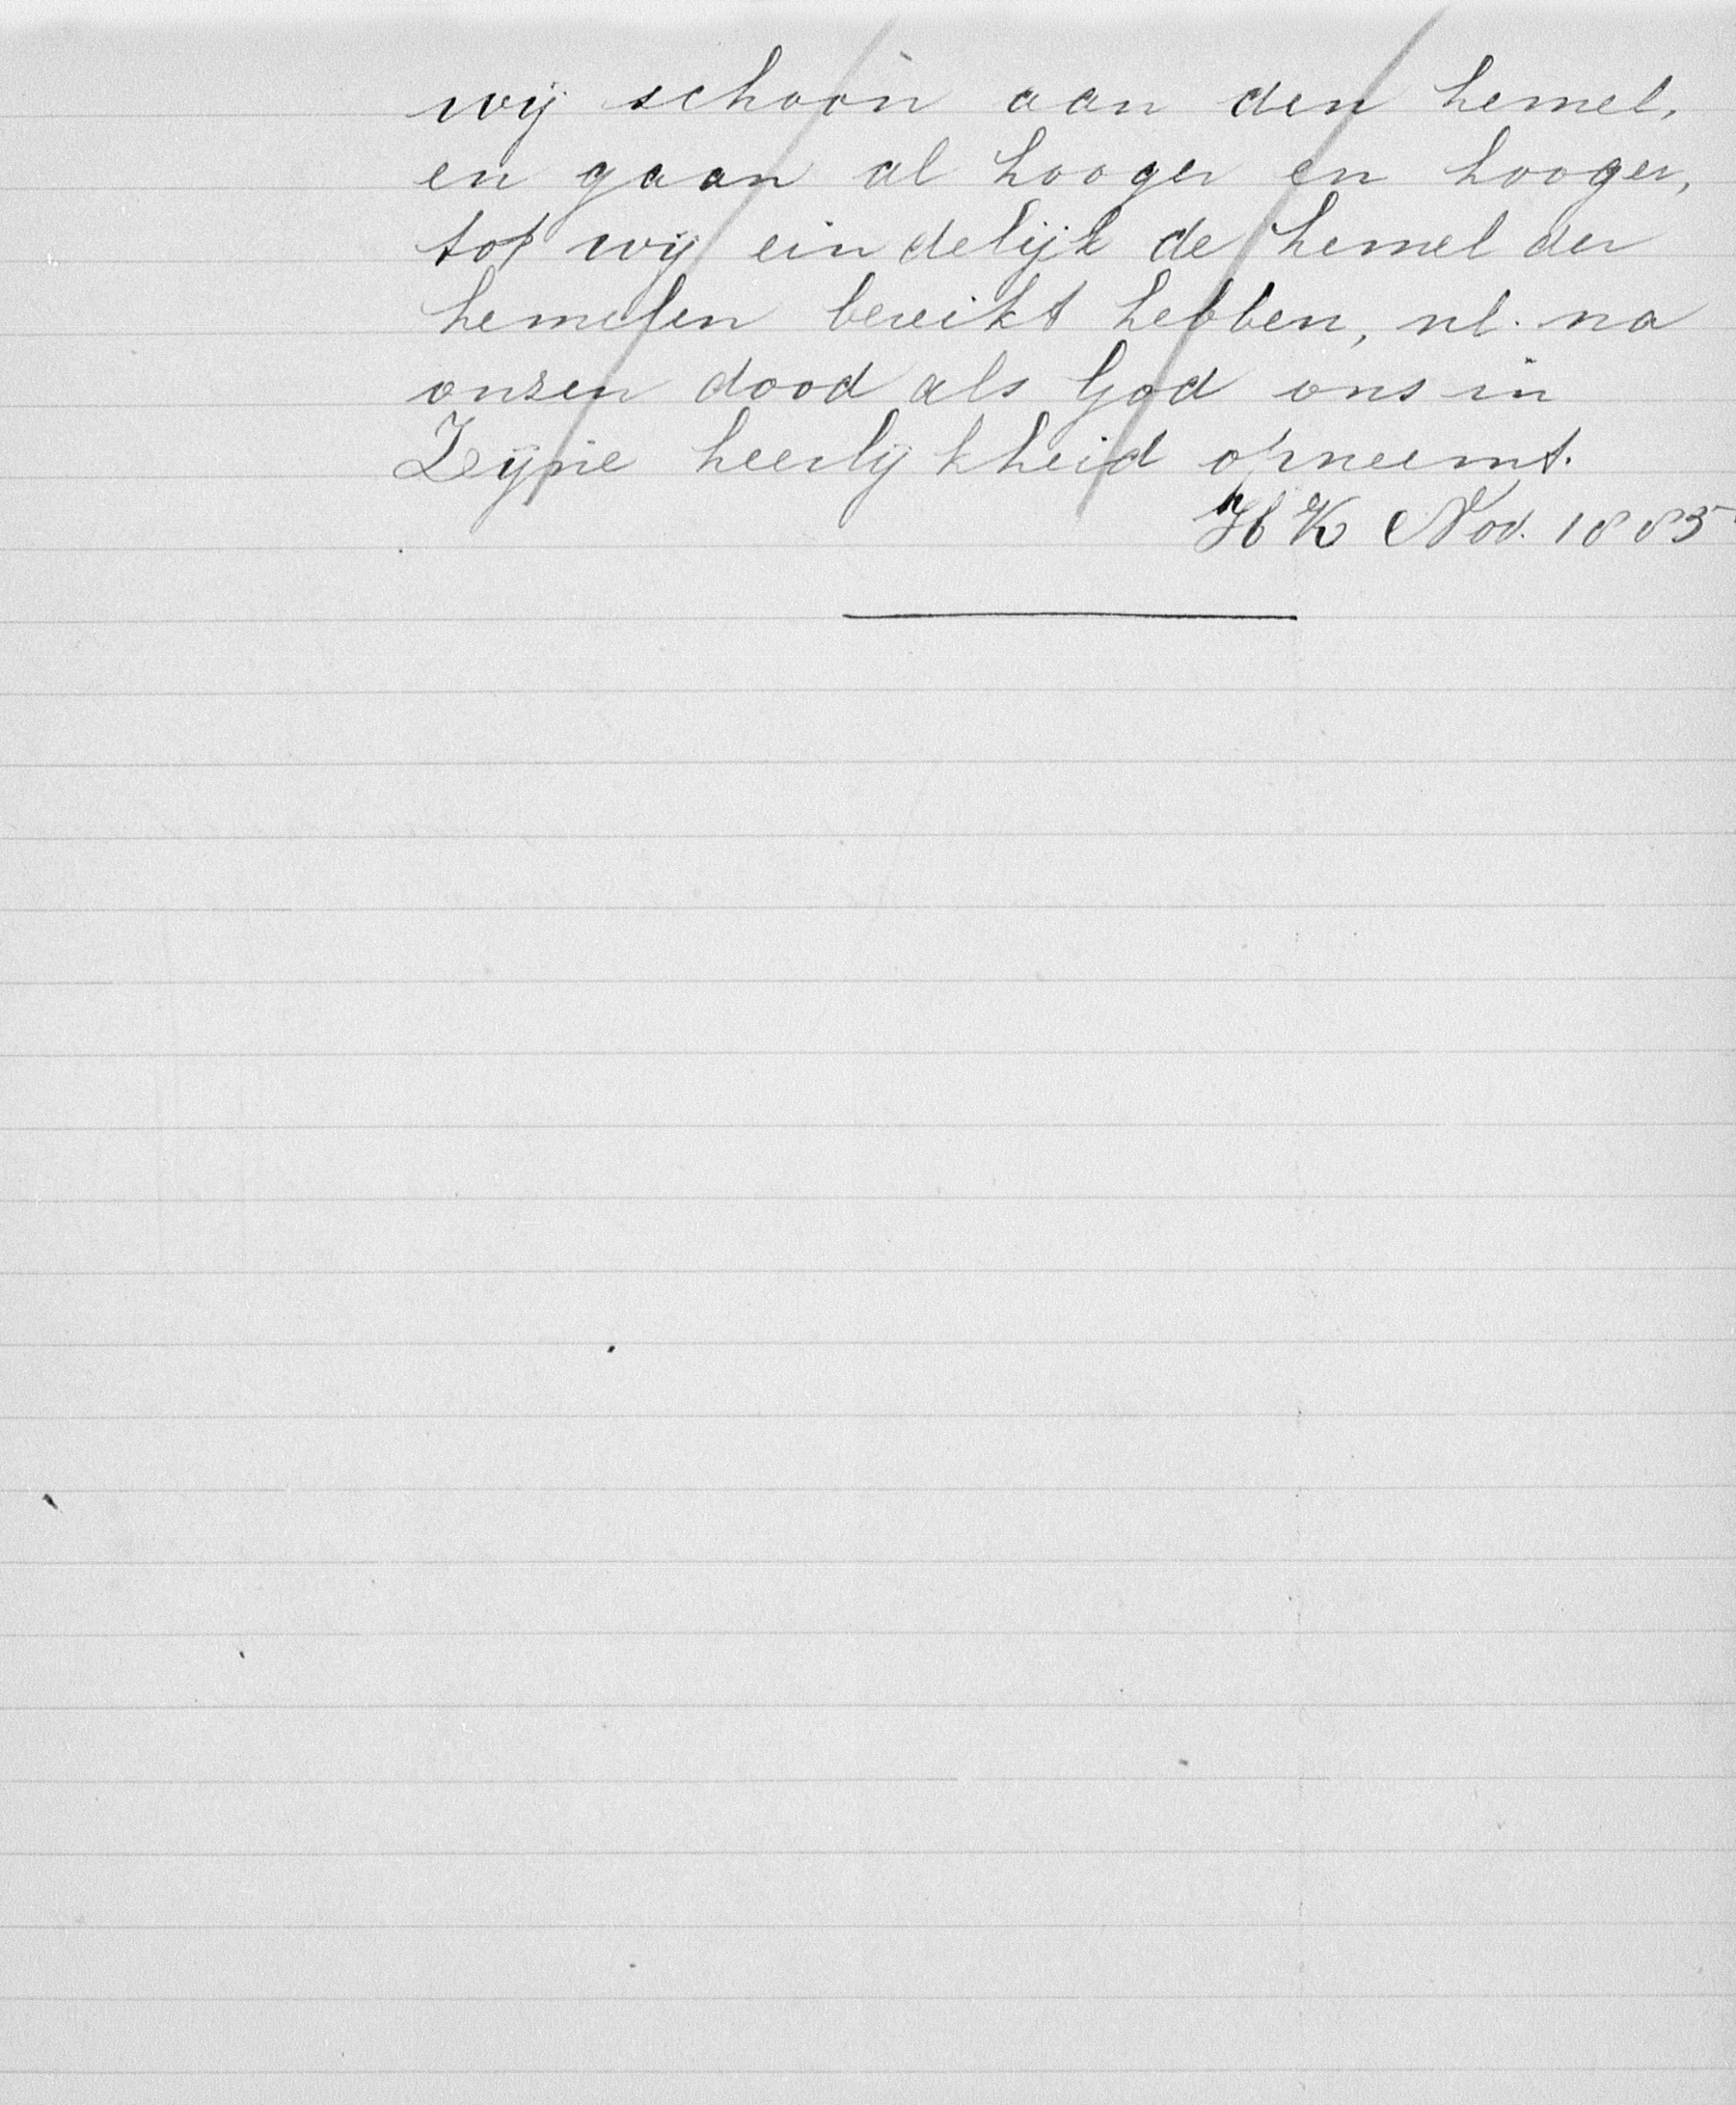 wij schoon aan den hemel,
en gaan al hooger en hooger,
tot wij eindelijk de hemel der
hemelen bereikt hebben, nl. na
onzen dood als God ons in
Zijne heerlijkheid opneemt.
HK Nov. 1885